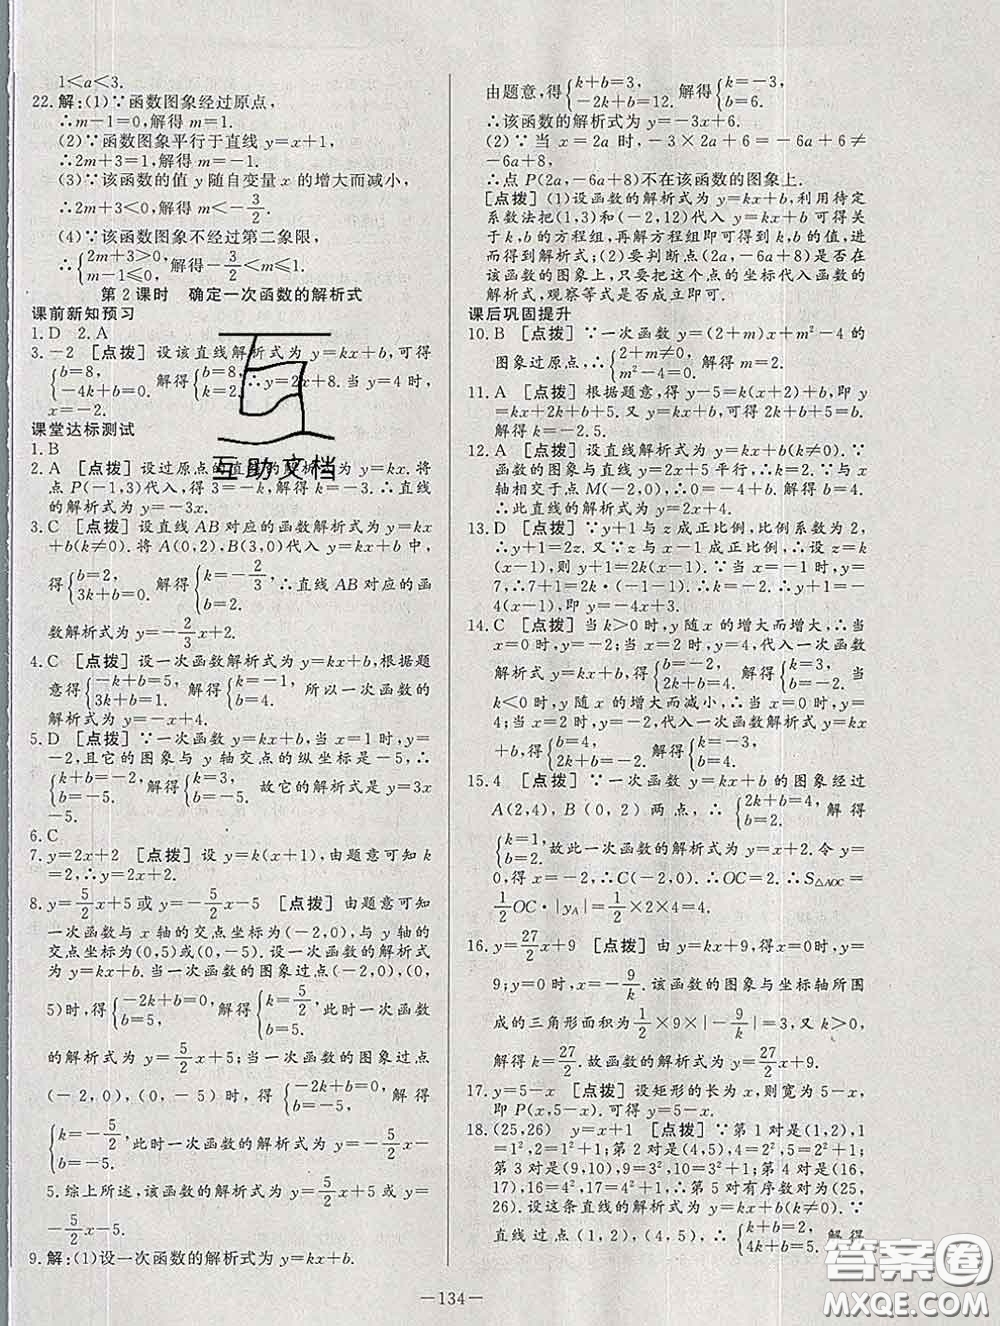 1<a<3.
22. 解:(1)∵函数图象经过原点,
∴m-1=0,解得 m=1.
(2)∵函数图象平行于直线 y=x+1,
∴2m+3=1,解得 m=-1.
(3)∵该函数的值 y 随自变量 x 的增大而减小,
∴2m+3<0,解得 m<-3/2.
(4)∵该函数图象不经过第二象限,
∴{2m+3>0, m-1≤0, 解得-3/2<m≤1.
第 2 课时 确定一次函数的解析式
课前新知预习
1. D 2. A
3. -2 [点拨] 设该直线解析式为 y=kx+b,可得
{b=8, -4k+b=0. 解得{b=8, ∴y=2x+8. 当 y=4 时,
x=-2.
课堂达标测试
1. B
2. A [点拨] 设过原点的直线的解析式为 y=kx. 将
点 P(-1,3)代入,得 3=-k,解得 k=-3. ∴直线
的解析式为 y=-3x.
3. C [点拨] 设直线 AB 对应的函数解析式为 y=kx
+b(k≠0). 将 A(0,2),B(3,0)代入 y=kx+b 中,
得{b=2, 3k+b=0. 解得{k=-2/3, b=2. ∴直线 AB 对应的函
数解析式为 y=-2/3x+2.
4. C [点拨] 设一次函数解析式为 y=kx+b,根据题
意得{-k+b=5, 3k+b=1. 解得{k=-1, b=4. 所以一次函数的
解析式为 y=-x+4.
5. D [点拨] ∵一次函数 y=kx+b,当 x=1 时,y=
-2,且它的图象与 y 轴交点的纵坐标是-5,∴
{k+b=-2, b=-5. 解得{k=3, b=-5. 故它的解析式为 y=3x
-5.
6. C
7. y=2x+2 [点拨] 设 y=k(x+1),由题意可知 k
=2,∴y=2x+2.
8. y=5/2x+5 或 y=-5/2x-5 [点拨] 由题意可知
一次函数与 x 轴的交点坐标为(-2,0),与 y 轴的
交点坐标为(0,5)或(0,-5). 设一次函数的解析式
为 y=kx+b. 当一次函数的图象过点(-2,0),(0,
5)时,得{-2k+b=0, b=5, 解得{k=5/2, b=5. 此时一次函数
的解析式为 y=5/2x+5;当一次函数的图象过点
(-2,0),(0,-5)时,得{-2k+b=0, b=-5. 解得
{k=-5/2, b=-5. 此时一次函数的解析式为 y=-5/2x-
5. 综上所述,该函数的解析式为 y=5/2x+5 或 y=
-5/2x-5.
9. 解:(1)设一次函数的解析式为 y=kx+b.
由题意,得{k+b=3, -2k+b=12. 解得{k=-3, b=6.
∴该函数的解析式为 y=-3x+6.
(2)∵当 x=2a 时,-3×2a+6=-6a+6≠
-6a+8,
∴点 P(2a,-6a+8)不在该函数的图象上.
[点拨] (1)设函数的解析式为 y=kx+b,利用待定
系数法把(1,3)和(-2,12)代入 y=kx+b 可得关
于 k,b 的方程组,再解方程组即可得到 k,b 的值,进
而得到解析式;(2)要判断点(2a,-6a+8)是否在
该函数的图象上,只要把这个点的坐标代入函数的
解析式,观察等式是否成立即可.
课后巩固提升
10. B [点拨] ∵一次函数 y=(2+m)x+m²-4 的
图象过原点,∴{2+m≠0, m²-4=0. 解得 m=2.
11. A [点拨] 根据题意,得 y-5=k(x+2)+b,即 y
=kx+2k+b+5. 又 y=kx+b,可得 2k+b+5=b.
解得 k=-2.5.
12. A [点拨] 设直线解析式为 y=kx+b(k≠0). ∵
函数的图象与直线 y=2x+5 平行,∴k=2. ∵与 x
轴相交于点 M(-2,0),∴0=-4+b. 解得 b=4.
∴此直线的解析式为 y=2x+4.
13. D [点拨] ∵y+1 与 z 成正比例,比例系数为 2,
∴y+1=2z. 又∵z 与 x-1 成正比例,∴设 z=k
(x-1),则 y+1=2k(x-1). ∵当 x=-1 时,y=
7,∴7+1=2k·(-1-1). 解得 k=-2. ∴y+1=
-4(x-1),即 y=-4x+3.
14. C [点拨] 当 k>0 时,y 随 x 的增大而增大,∴当
x=0 时,y=-2;当 x=2 时,y=4. 代入一次函数
解析式 y=kx+b,得{b=-2, 2k+b=4. 解得{k=3, b=-2. 当
k<0 时,y 随 x 的增大而减小,∴当 x=0 时,y=
4;当 x=2 时,y=-2,代入一次函数解析式 y=kx
+b,得{b=4, 2k+b=-2. 解得{k=-3, b=4.
15. 4 [点拨] ∵一次函数 y=kx+b 的图象经过
A(2,4),B(0,2)两点,∴{2k+b=4, b=2. 解得
{k=1, b=2. 故此一次函数的解析式为 y=x+2. 令 y
=0,得 x=-2,∴C(-2,0). ∴OC=2. ∴S△AOC=
1/2OC·|yA|=1/2×2×4=4.
16. y=27/2x+9 [点拨] 由 y=kx+9,得 x=0 时,y=
9;y=0 时,x=-9/k. 该函数的图象与坐标轴所围
成的三角形面积为1/2×9×|-9/k|=3. 又 k>0,
解得 k=27/2. 故函数的解析式为 y=27/2x+9.
17. y=5-x [点拨] 设矩形的长为 x,则宽为 5-x,
即 P(x,5-x). 可得 y=5-x.
18. (25,26) y=x+1 [点拨] ∵第 1 对是(1,2),
1=1²,2=1²+1;第 2 对是(4,5),4=2²,5=2²+1;
第 3 对是(9,10),9=3²,10=3²+1;第 4 对是(16,
17),16=4²,17=4²+1;∴第 5 对有序数对为(25,
26). 设这条直线的解析式为 y=kx+b(k≠0). ∵
直线过点(1,2),(4,5),∴{k+b=2, 4k+b=5. 解得
互助文档
答案圈
MXQE.COM
—134—